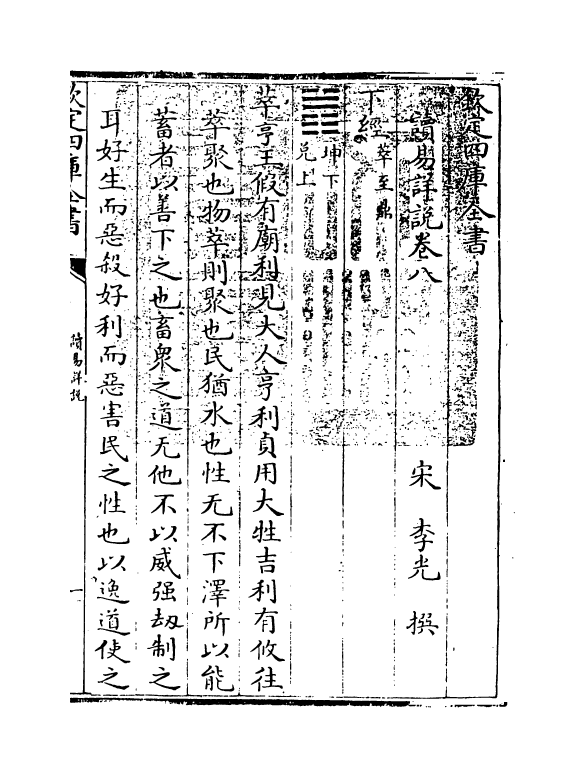 欽定四庫全書
讀易詳說卷八
宋 李光 撰
下經 萃至鼎
䷬ 坤下
兌上
萃亨王假有廟利見大人亨利貞用大牲吉利有攸往
萃聚也物萃則聚也民猶水也性无不下澤所以能
蓄者以善下之也畜衆之道无他不以威强劫制之
耳好生而惡殺好利而惡害民之性也以逸道使之
欽定四庫全書
讀易詳說
一